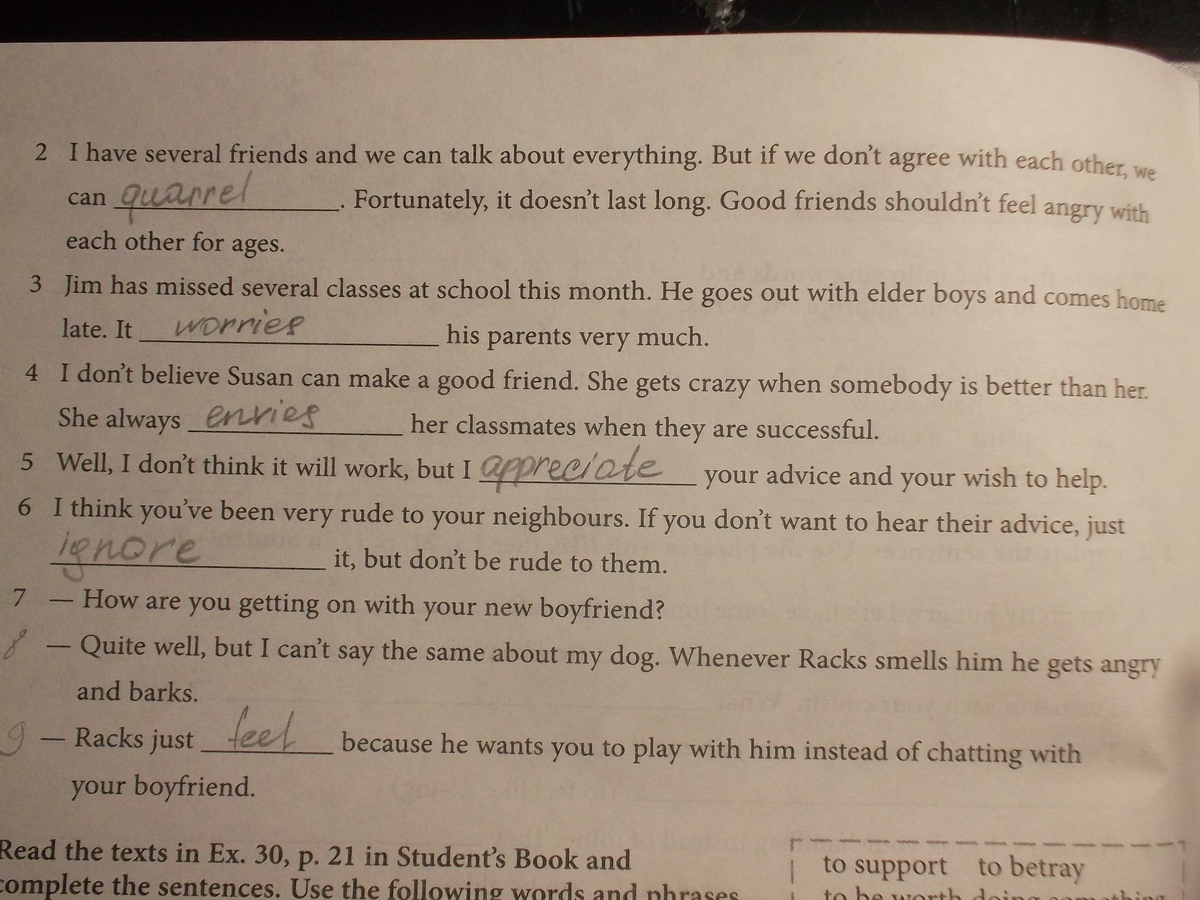 2 I have several friends and we can talk about everything. But if we don't agree with each other, we
can quarrel. Fortunately, it doesn't last long. Good friends shouldn't feel angry with
each other for ages.
3 Jim has missed several classes at school this month. He goes out with elder boys and comes home
late. It worries his parents very much.
4 I don't believe Susan can make a good friend. She gets crazy when somebody is better than her.
She always envies her classmates when they are successful.
5 Well, I don't think it will work, but I appreciate your advice and your wish to help.
6 I think you've been very rude to your neighbours. If you don't want to hear their advice, just
ignore it, but don't be rude to them.
7 — How are you getting on with your new boyfriend?
8 — Quite well, but I can't say the same about my dog. Whenever Racks smells him he gets angry
and barks.
9 — Racks just feel because he wants you to play with him instead of chatting with
your boyfriend.
Read the texts in Ex. 30, p. 21 in Student's Book and
complete the sentences. Use the following words and phrases
to support to betray
to be worth doing something